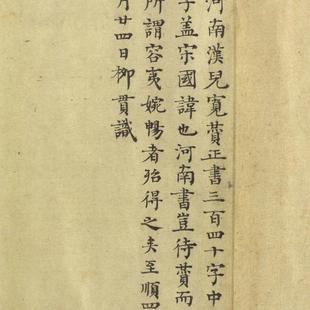 河南漢兒寬賛正書三百四十字中
字蓋宋國諱也河南書豈待賛而
所謂容夷婉暢者殆得之矣至順四
月廿四日柳貫識